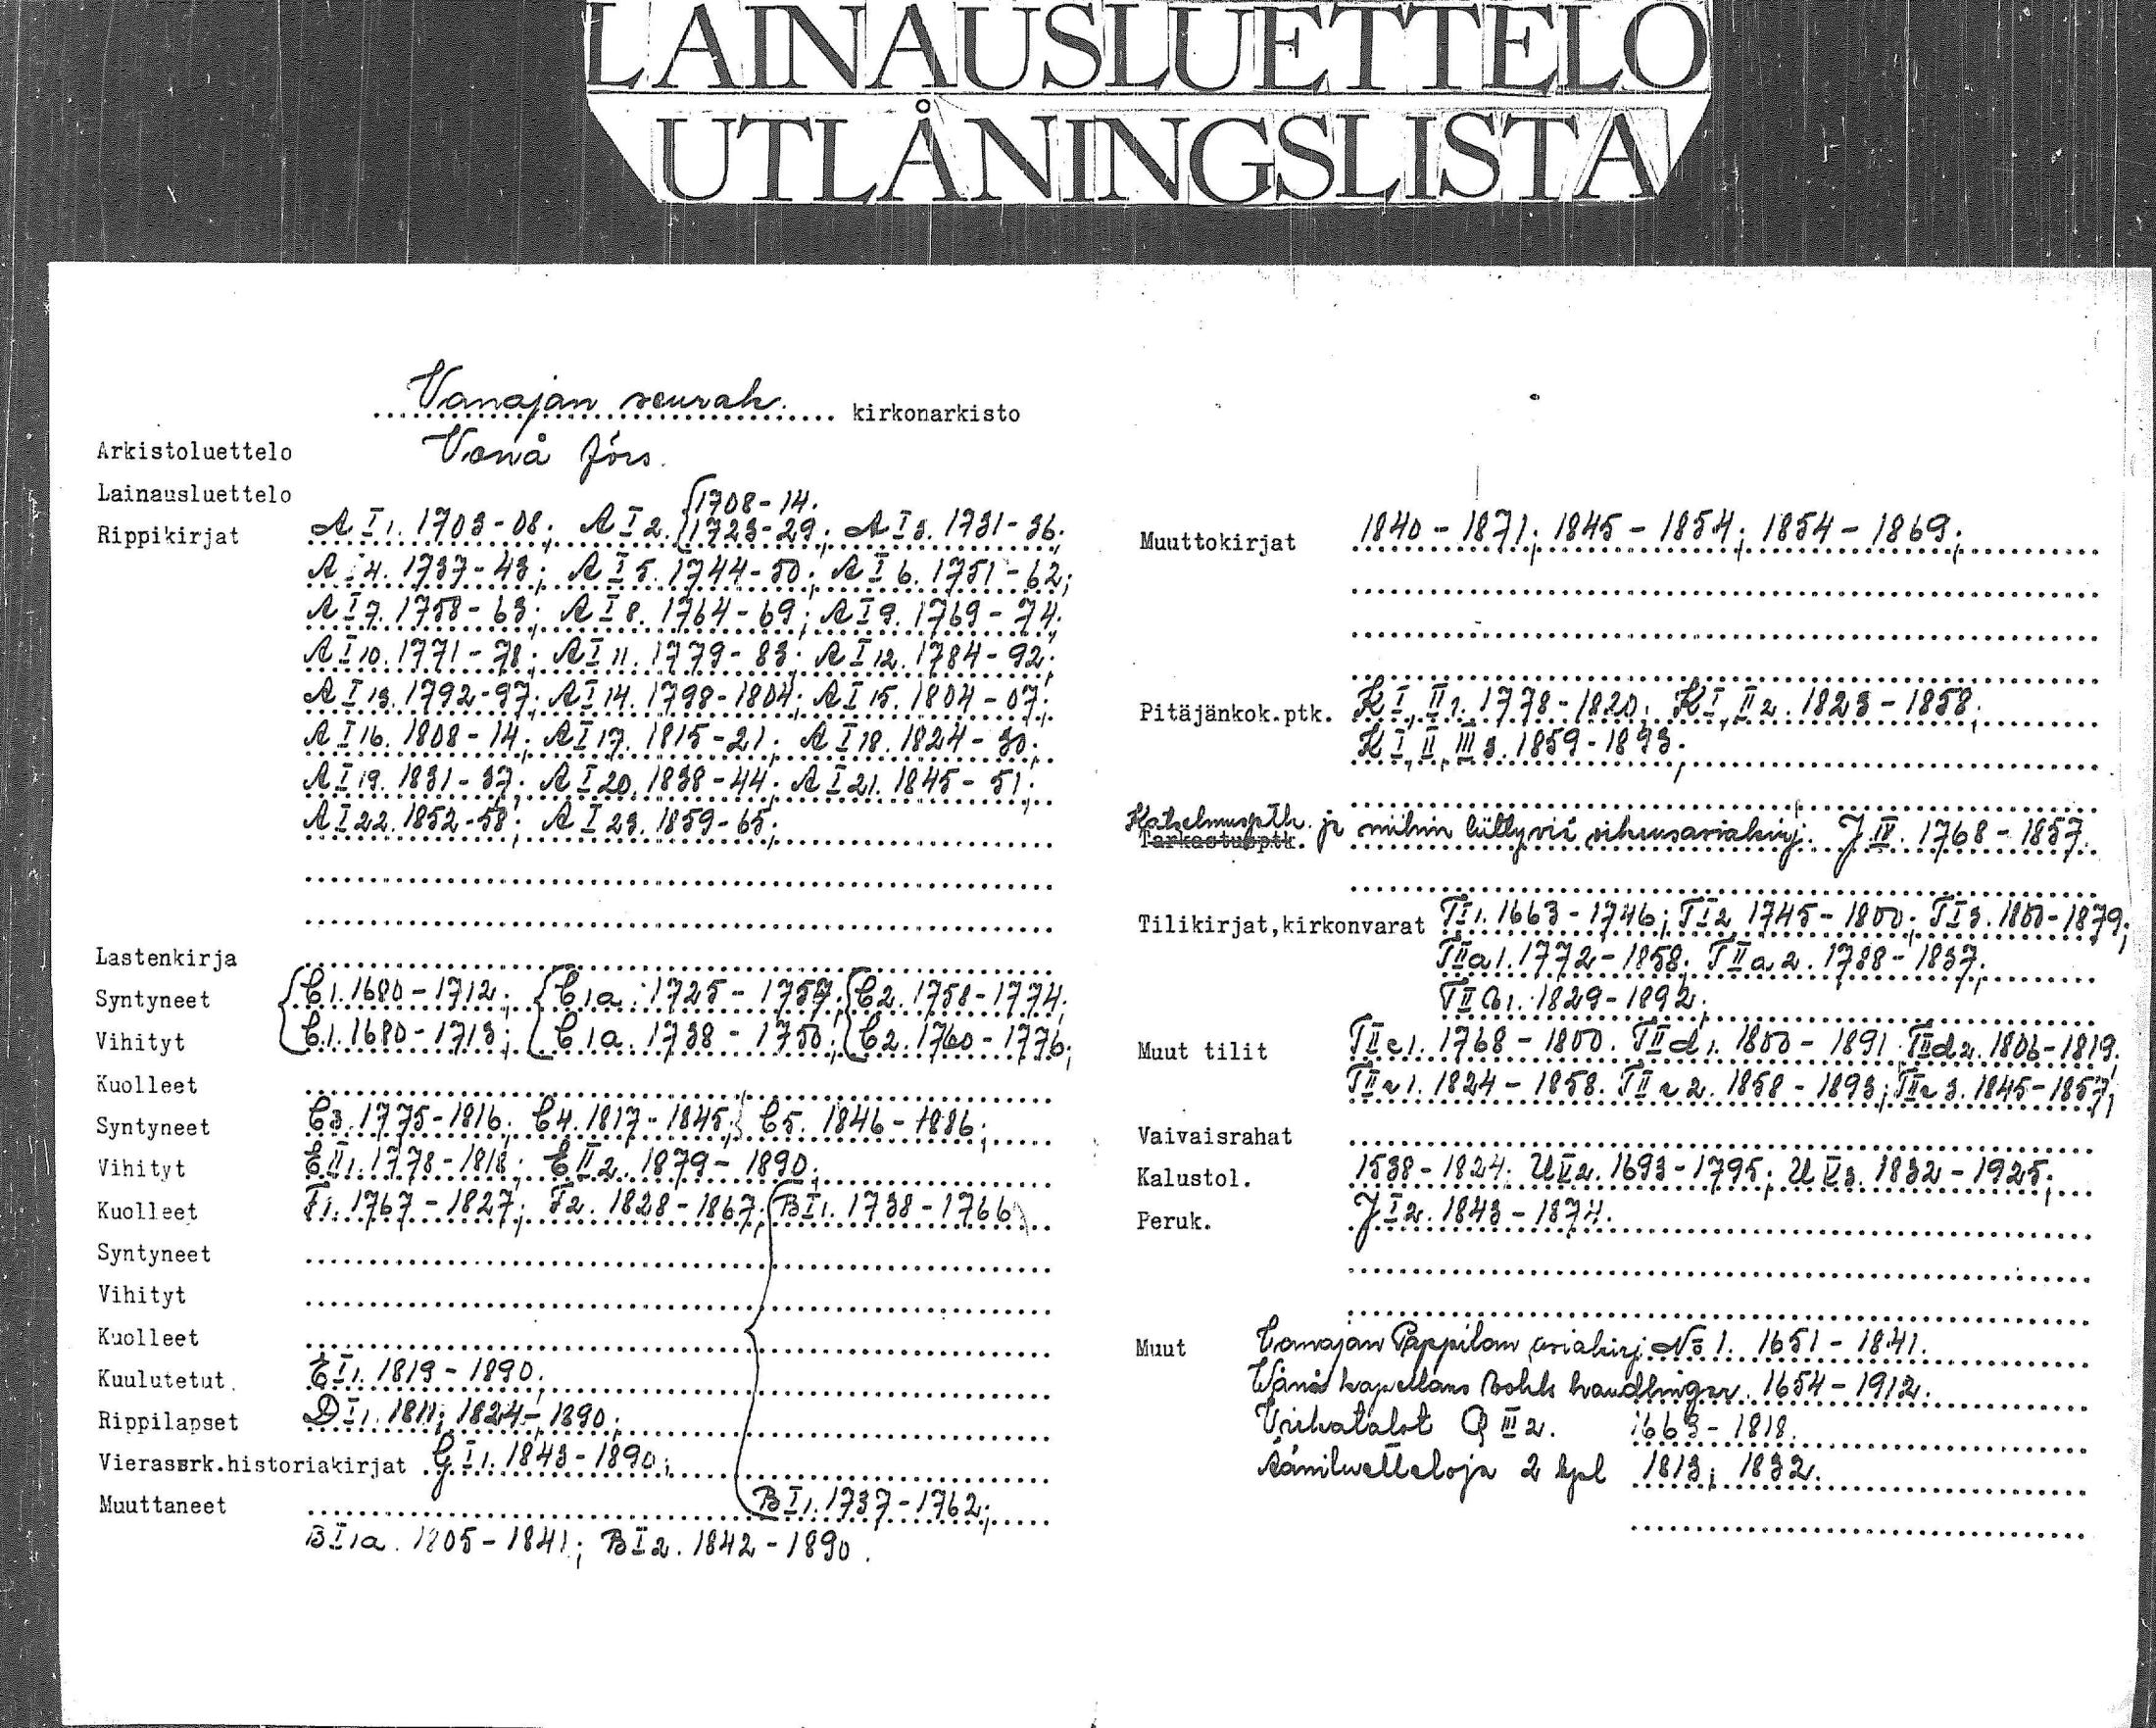 LAINAUSLUETTELO
UTLÅNINGSLISTA
Vanajan seurak. kirkonarkisto
Arkistoluettelo Vånå förs.
Lainausluettelo
Rippikirjat A I 1. 1703-08; A I 2. {1708-14. 1723-29; A I 3. 1731-36;
A I 4. 1737-43; A I 5. 1744-50; A I 6. 1751-62;
A I 7. 1758-63; A I 8. 1764-69; A I 9. 1769-74;
A I 10. 1771-78; A I 11. 1779-83; A I 12. 1784-92;
A I 13. 1792-97; A I 14. 1798-1804; A I 15. 1804-07;
A I 16. 1808-14; A I 17. 1815-21; A I 18. 1824-30;
A I 19. 1831-37; A I 20. 1838-44; A I 21. 1845-51;
A I 22. 1852-58; A I 23. 1859-65;
Lastenkirja
Syntyneet {C1. 1680-1712; {C1a. 1725-1757; {C2. 1758-1774;
Vihityt C1. 1680-1713; C1a. 1738-1750; C2. 1760-1776;
Kuolleet
Syntyneet C3. 1775-1816; C4. 1817-1845; C5. 1846-1886;
Vihityt E II 1. 1778-1818; E II 2. 1879-1890;
Kuolleet F1. 1767-1827; F2. 1828-1867; {B I 1. 1738-1766
Syntyneet
Vihityt
Kuolleet
Kuulutetut E I 1. 1819-1890;
Rippilapset D I 1. 1811; 1824-1890;
Vierassrk.historiakirjat G I 1. 1843-1890;
Muuttaneet B I 1. 1737-1762;
B I 1a. 1805-1841; B I 2. 1842-1890.
Muuttokirjat 1840-1871; 1845-1854; 1854-1869;
Pitäjänkok.ptk. K I, II 1. 1778-1820; K I, II 2. 1823-1858;
K I, II, III 3. 1859-1893;
Katselmusptk. ja niihin liittyviä oikeusasiakirj. J IV. 1768-1857.
Tarkastusptk.
Tilikirjat,kirkonvarat T I 1. 1663-1746; T I 2 1745-1800; T I 3. 1800-1879;
T II a 1. 1772-1858; T II a 2. 1788-1837;
T II b 1. 1829-1892;
Muut tilit T II c 1. 1768-1800. T II d 1. 1800-1891 T II d 2. 1806-1819.
T II e 1. 1824-1858. T II e 2. 1858-1893; T II e 3. 1845-1857;
Vaivaisrahat
Kalustol. 1538-1824; U V 2. 1693-1795; U V 3. 1832-1925;
Peruk. J I 2. 1843-1874.
Muut Vanajan Pappilan asiakirj. No 1. 1651-1841.
Wånå kapellans bohls handlingar. 1654-1912.
Virkatalot Q III 2. 1663-1818.
Ääniluetteloja 2 kpl 1813; 1832.